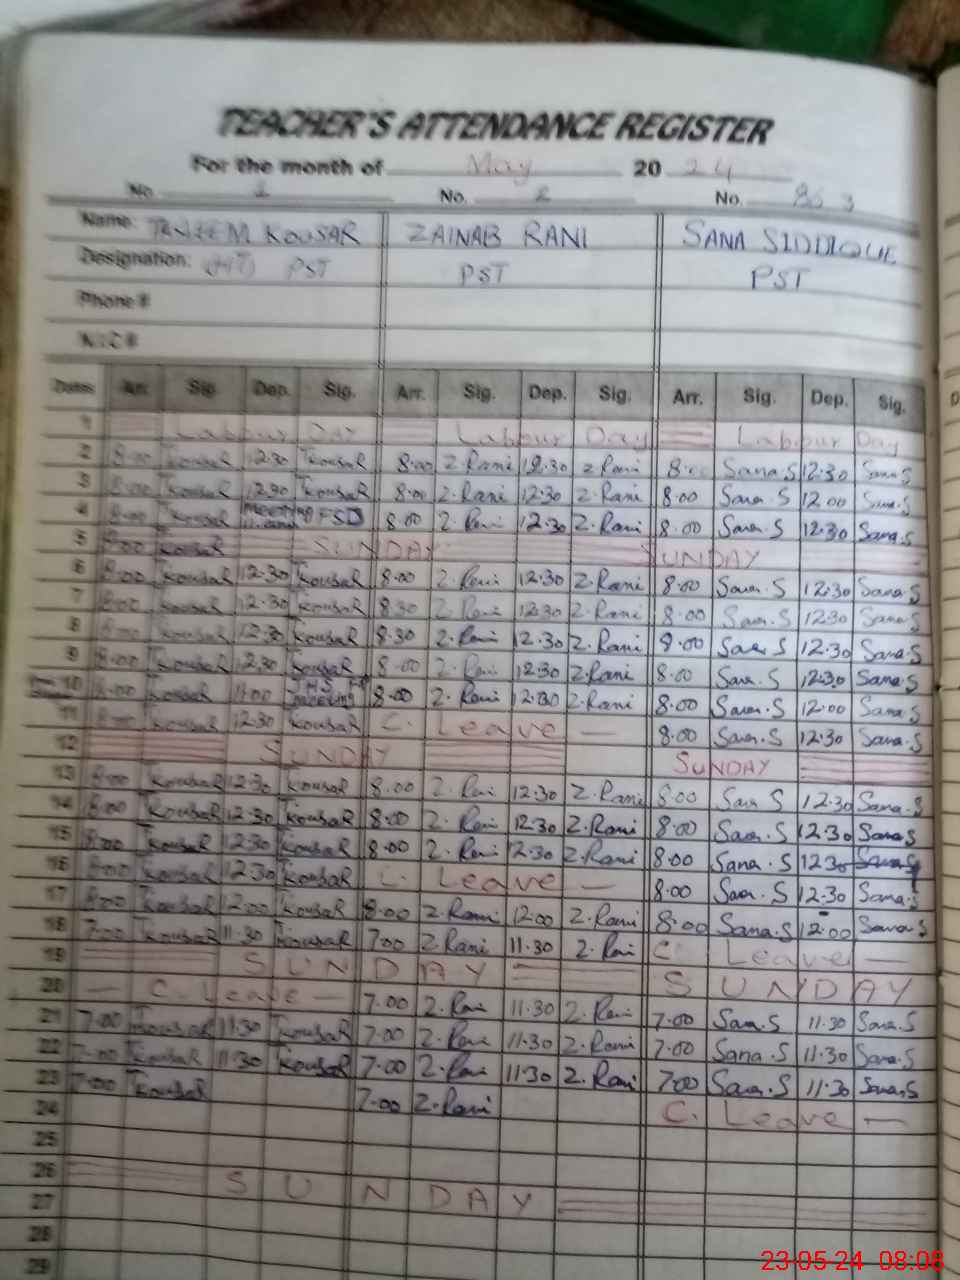 TEACHER'S ATTENDANCE REGISTER
For the month of May 20 24
No. 1 No. 2 No. 3
Name: KOUSAR ZAINAB RANI SANA SIDDIQUE
Designation: (HT) PST PST PST
Phone #
N.I.C #
Dates Arr. Sig. Dep. Sig. Arr. Sig. Dep. Sig. Arr. Sig. Dep. Sig.
1 Labour Day Labour Day Labour Day
2 8:00 Kousar 12:30 Kousar 8:00 Z.Rani 12:30 Z.Rani 8:00 Sana.S 12:30 Sana.S
3 8:00 Kousar 12:30 Kousar 8:00 Z.Rani 12:30 Z.Rani 8:00 Sana.S 12:00 Sana.S
4 8:00 Kousar Meeting FSD 8:00 Z.Rani 12:30 Z.Rani 8:00 Sana.S 12:30 Sana.S
5 8:00 Kousar SUNDAY SUNDAY
6 8:00 Kousar 12:30 Kousar 8:00 Z.Rani 12:30 Z.Rani 8:00 Sana.S 12:30 Sana.S
7 8:00 Kousar 12:30 Kousar 8:30 Z.Rani 12:30 Z.Rani 8:00 Sana.S 12:30 Sana.S
8 8:00 Kousar 12:30 Kousar 8:30 Z.Rani 12:30 Z.Rani 8:00 Sana S 12:30 Sana.S
9 8:00 Kousar 12:30 Kousar 8:00 Z.Rani 12:30 Z.Rani 8:00 Sana.S 12:30 Sana.S
10 8:00 Kousar 11:00 meeting 8:00 Z.Rani 12:30 Z.Rani 8:00 Sana.S 12:00 Sana.S
11 8:00 Kousar 12:30 Kousar C. Leave — 8:00 Sana.S 12:30 Sana.S
12 SUNDAY SUNDAY
13 8:00 Kousar 12:30 Kousar 8:00 Z.Rani 12:30 Z.Rani 8:00 Sana S 12:30 Sana.S
14 8:00 Kousar 12:30 Kousar 8:00 Z.Rani 12:30 Z.Rani 8:00 Sana.S 12:30 Sana S
15 8:00 Kousar 12:30 Kousar 8:00 Z.Rani 12:30 Z.Rani 8:00 Sana.S 12:30 Sana.S
16 8:00 Kousar 12:30 Kousar C. Leave — 8:00 Sana.S 12:30 Sana.S
17 8:00 Kousar 12:00 Kousar 8:00 Z.Rani 12:00 Z.Rani 8:00 Sana.S 12:00 Sana.S
18 7:00 Kousar 11:30 Kousar 7:00 Z.Rani 11:30 Z.Rani C. Leave —
19 SUNDAY SUNDAY
20 — C. Leave — 7:00 Z.Rani 11:30 Z.Rani 7:00 Sana.S 11:30 Sana.S
21 7:00 Kousar 11:30 Kousar 7:00 Z.Rani 11:30 Z.Rani 7:00 Sana.S 11:30 Sana.S
22 7:00 Kousar 11:30 Kousar 7:00 Z.Rani 11:30 Z.Rani 7:00 Sana.S 11:30 Sana.S
23 7:00 Kousar 7:00 Z.Rani C. Leave —
24
25
26 SUNDAY
27
28
29
23-05-24 08:08